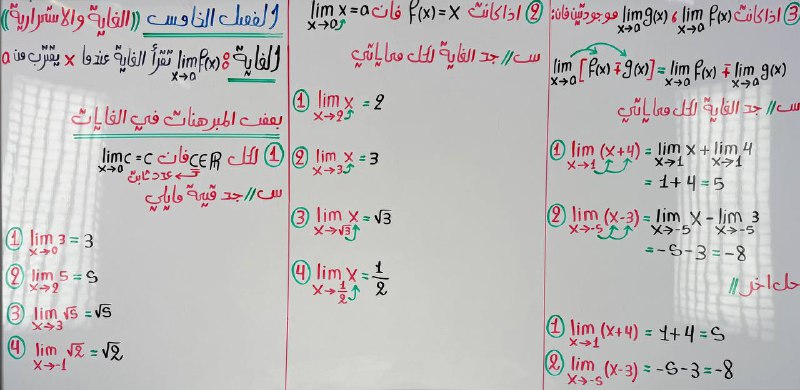 الفصل الخامس ((الغاية والاستمرارية))
الغاية: lim f(x) x→a تقرأ الغاية عندما x يقترب من a
بعض المبرهنات في الغايات
① لكل c∈R فان lim c = c x→a
عدد ثابت
س// جد قيمة مايلي
① lim 3 = 3 x→0
② lim 5 = 5 x→2
③ lim √5 = √5 x→3
④ lim √2 = √2 x→-1
② اذا كانت f(x) = x فان lim x = a x→a
س// جد الغاية لكل مماياتي
① lim x = 2 x→2
② lim x = 3 x→3
③ lim x = √3 x→√3
④ lim x = 1/2 x→1/2
③ اذا كانت lim f(x) x→a ، lim g(x) x→a موجودتين فان:
lim [f(x) ∓ g(x)] = lim f(x) ∓ lim g(x) x→a x→a x→a
س// جد الغاية لكل مماياتي
① lim (x+4) = lim x + lim 4 x→1 x→1 x→1
= 1 + 4 = 5
② lim (x-3) = lim x - lim 3 x→-5 x→-5 x→-5
= -5 - 3 = -8
حل اخر //
① lim (x+4) = 1 + 4 = 5 x→1
② lim (x-3) = -5 - 3 = -8 x→-5